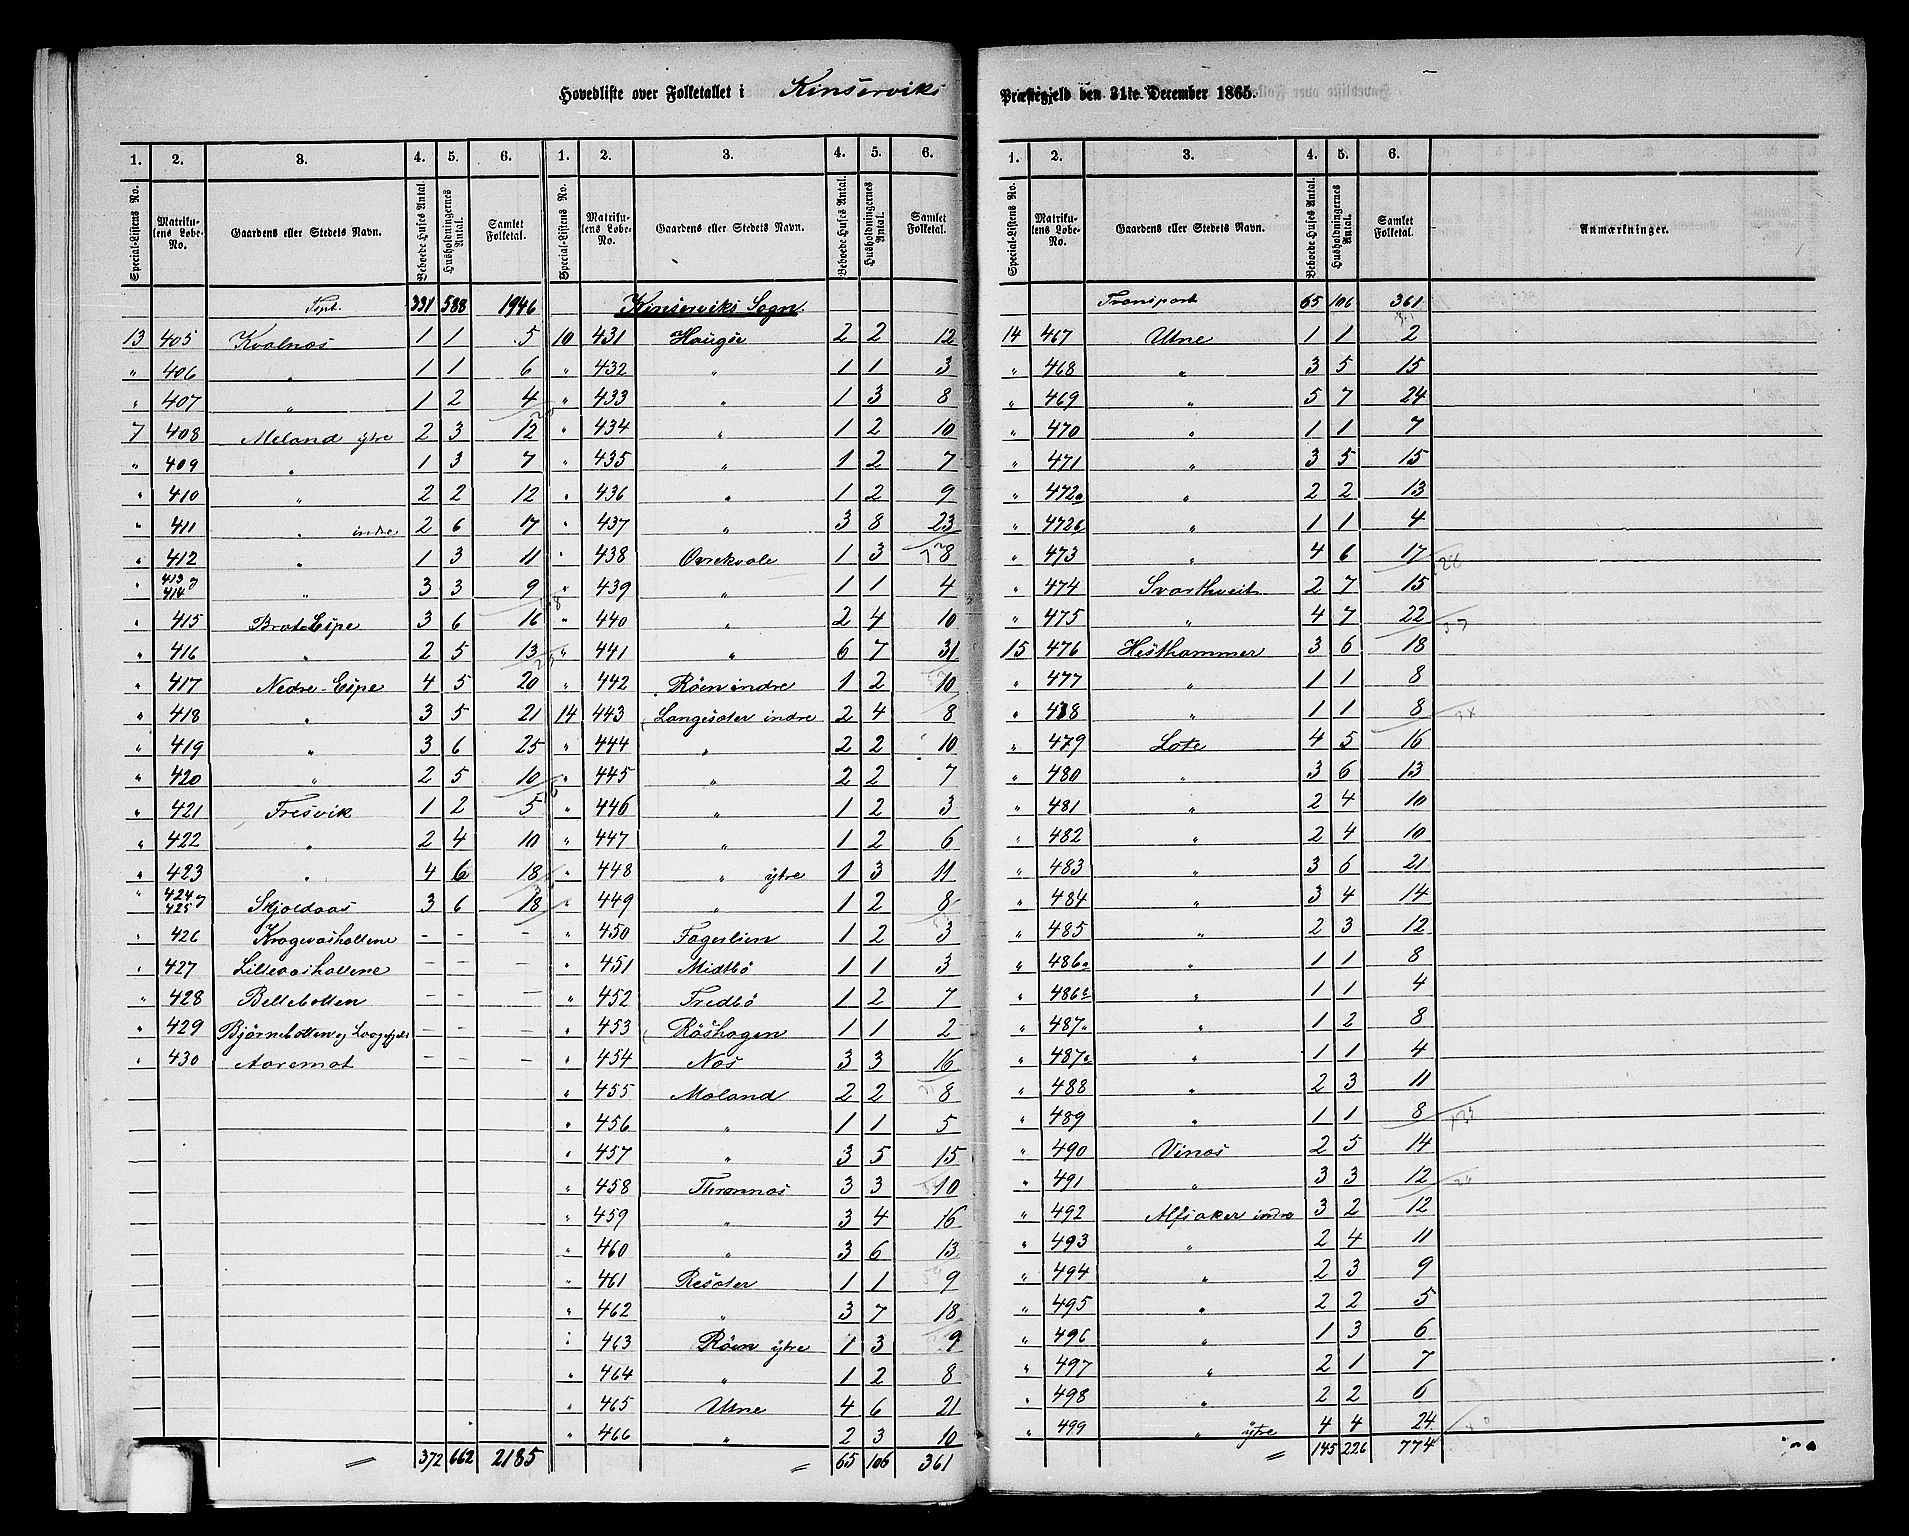 Hovedliste over Folketallet i Kinserviks Præstegjeld den 31te December 1865.
1. 2. 3. 4. 5. 6. 1. 2. 3. 4. 5. 6.
Special-Listens No. Matrikulens Løbe-No. Gaardens eller Stedets Navn. Beboede Huses Antal. Husholdningernes Antal. Samlet Folketal. Special-Listens No. Matrikulens Løbe-No. Gaardens eller Stedets Navn. Beboede Huses Antal. Husholdningernes Antal. Samlet Folketal.
Tspt. 331 588 1946
13 405 Kvalnæs 1 1 5
" 406 " 1 1 6
" 407 " 1 2 4
7 408 Meland ytre 2 3 12
" 409 " 1 3 7
" 410 " 2 2 12
" 411 " indre 2 6 17
" 412 " 1 3 11
" 413 og 414 " 3 3 9
" 415 Brat Espe 3 6 16
" 416 " 2 5 13
" 417 Nedre-Espe 4 5 20
" 418 " 3 5 21
" 419 " 3 6 25
" 420 " 2 5 10
" 421 Fresvik 1 2 5
" 422 " 2 4 10
" 423 " 4 6 18
" 424 og 425 Skjoldaas 3 6 18
" 426 Kragevashallene - - -
" 427 Lillevashallene - - -
" 428 Bellebotten - - -
" 429 Bjørnebotten og - - -
" 430 Aaremot - - -
372 662 2185
Kinserviks Sogn.
10 431 Hauge 2 2 12
" 432 " 1 1 3
" 433 " 1 3 8
" 434 " 1 2 10
" 435 " 1 2 7
" 436 " 1 2 9
" 437 " 3 8 23
" 438 Øvrekvale 1 3 8
" 439 " 1 1 4
" 440 " 2 4 10
" 441 " 6 7 31
" 442 Røen indre 1 2 10
14 443 Langesæter indre 2 4 8
" 444 " 2 2 10
" 445 " 2 2 7
" 446 " 1 2 3
" 447 " 1 2 6
" 448 " ytre 1 3 11
" 449 " 1 2 8
" 450 Fagerlien 1 2 3
" 451 Midtbø 1 1 3
" 452 Tredbø 1 2 7
" 453 Røshagen 1 1 2
" 454 Næs 3 3 16
" 455 Maland 2 2 8
" 456 " 1 1 5
" 457 " 3 5 15
" 458 Thrønnæs 3 3 10
" 459 " 3 4 16
" 460 " 3 6 13
" 461 Resæter 1 1 9
" 462 " 3 7 18
" 463 Røen ytre 1 3 9
" 464 " 1 2 8
" 465 Utne 4 6 21
" 466 " 2 3 10
65 106 361
1. 2. 3. 4. 5. 6.
Special-Listens No. Matrikulens Løbe-No. Gaardens eller Stedets Navn. Beboede Huses Antal. Husholdningernes Antal. Samlet Folketal. Anmærkninger.
Transport 65 106 361
14 467 Utne 1 1 2
" 468 " 3 5 15
" 469 " 5 7 24
" 470 " 1 1 7
" 471 " 3 5 15
" 472a " 2 2 13
" 472b " 1 1 4
" 473 " 4 6 17
" 474 Svarthveit 2 7 15
" 475 " 4 7 22
15 476 Hesthammer 3 6 18
" 477 " 1 1 8
" 478 " 1 1 8
" 479 Lote 4 5 16
" 480 " 3 6 13
" 481 " 2 4 10
" 482 " 2 4 10
" 483 " 3 6 21
" 484 " 3 4 14
" 485 " 2 3 12
" 486a " 1 1 8
" 486b " 1 1 4
" 487a " 1 2 8
" 487b " 1 1 4
" 488 " 2 3 11
" 489 " 1 1 8
" 490 Vinæs 2 5 14
" 491 " 3 3 12
" 492 Alfsaker indre 3 2 12
" 493 " 2 4 11
" 494 " 2 3 9
" 495 " 2 2 5
" 496 " 1 3 6
" 497 " 2 1 7
" 498 " 2 2 6
" 499 " ytre 4 4 24
145 226 774